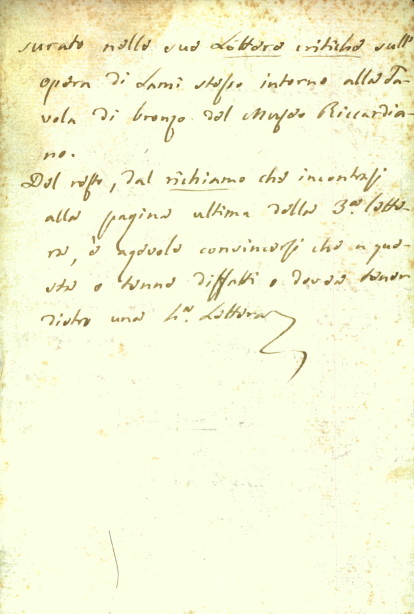 surato nelle sue Lettere critiche sull'
opera di Lami stesso intorno alla Ta-
vola di bronzo del Museo Riccardia-
no.
Del resto, dal richiamo che incontrasi
alla pagina ultima della 3.ª lette-
ra, è agevole convincersi che a que-
sta o tenne diffatti o dovea tener
dietro una 4.ª Lettera